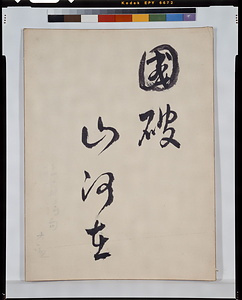 Kodak EPY 6072
國破
山河在